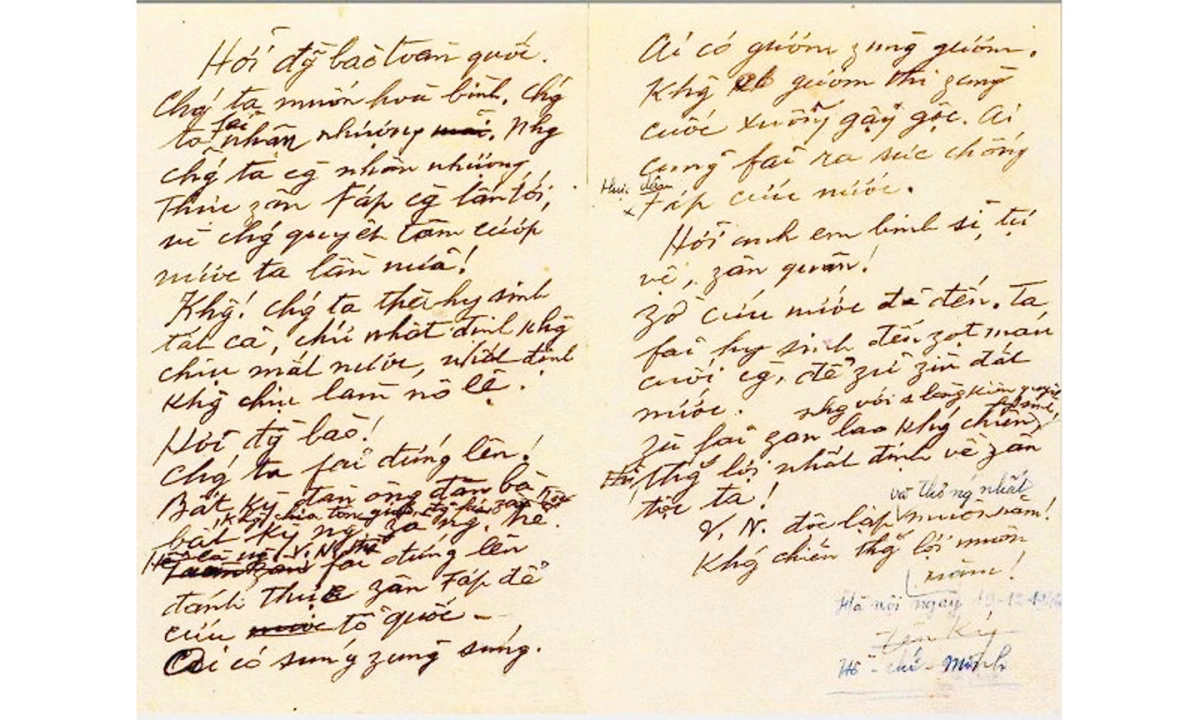 Hỡi đg̃ bào toàn quốc.
Chǵ ta muốn hoà bình, chǵ
ta fải nhân nhượng. Nhg
chǵ ta cg̀ nhân nhượng
Thực zân Fáp cg̀ lấn tới,
vì chǵ quyết tâm cướp
nước ta lần nữa!
Khg̀! chǵ ta thà hy sinh
tất cả, chứ nhất định khg̀
chịu mất nước, nhất định
khg̀ chịu làm nô lệ.
Hỡi đg̀ bào!
Chǵ ta fải đứng lên!
Bất kỳ đàn ông đàn bà
bất kỳ ng. zà ng. trẻ.
khg̀ chia tôn giáo, đg̉ fái, zân tộc
Hễ là ng. V.N. thì
fải đứng lên
đánh thực zân Fáp để
cứu nước tổ quốc –
Ai có súng zùng súng.
Ai có gươm zùng gươm.
Khg̀ có gươm thì zùng
cuốc xuổng gậy gộc. Ai
cũng fải ra sức chống
thực dân
x Fáp cứu nước.
Hỡi anh em binh sĩ, tự
vệ, zân quân!
Zờ cứu nước đã đến. Ta
fải hy sinh đến zọt máu
cuối cg̀, để zữ zìn đất
nước.
Zù fải zan lao khǵ chiến,
nhg với 1 lòng kiên quyết
hy sinh,
thǵ lợi nhất định về zân
tộc ta!
và thống nhất
V.N. độc lập muôn năm!
Khǵ chiến thǵ lợi muôn
năm!
Hà nội ngày 19-12-1946
Hồ-chí-Minh